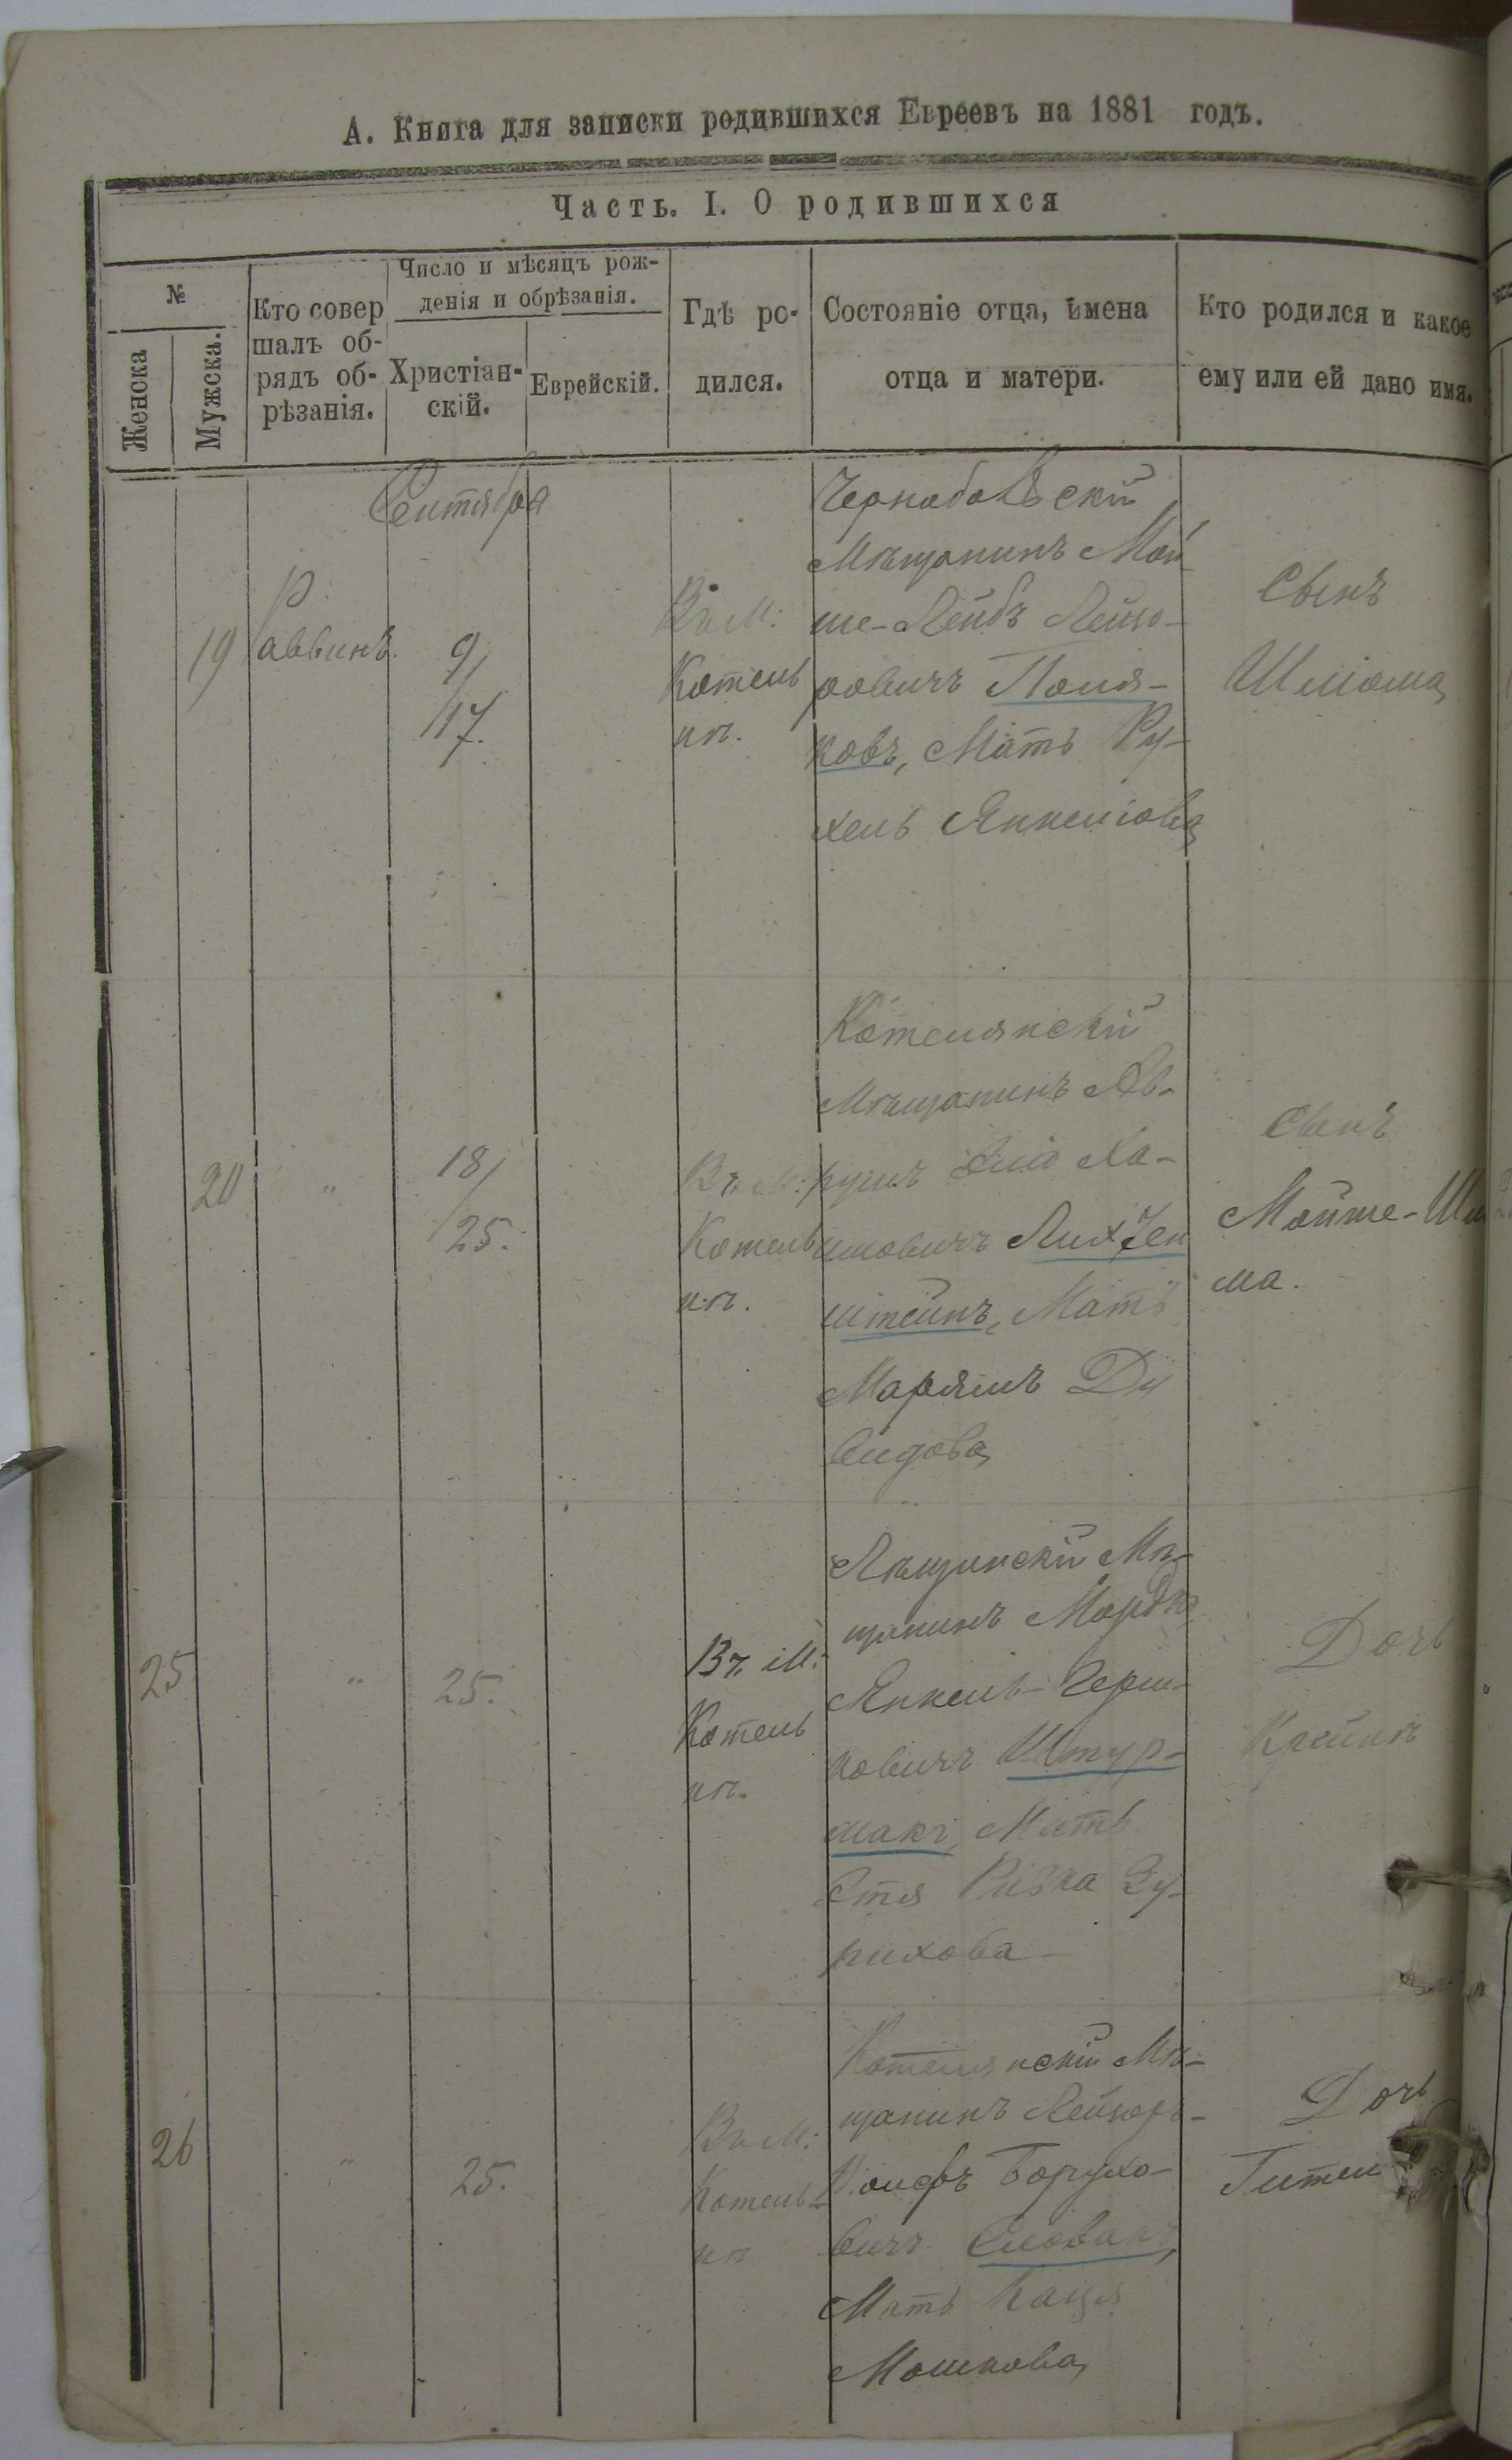 А. Книга для записки родившихся Евреевъ на 1881 годъ.
Часть. I. О родившихся
№
Женска
Мужска.
Кто совер
шалъ об-
рядъ об-
рѣзанія.
Число и мѣсяцъ рож-
денія и обрѣзанія.
Христіан-
скій.
Еврейскій.
Гдѣ ро-
дился.
Состояніе отца, имена
отца и матери.
Кто родился и какое
ему или ей дано имя.
Сентября
19
Р.
аввинъ.
9/
/17.
Въ М:
Котель
нѣ.
Мѣщанинъ Мой
ше-Лейбъ Лейзо-
ровичъ Поля-
ковъ, Мать Ру-
хель Янкелова
Сынъ
Шліома
20
"
18/
/25.
Въ М:
Котель
нѣ.
Котелянскій
Мѣщанинъ
Ха-
имовичъ Лихтен
штейнъ, Мать
Марямъ Да
видова
Сынъ
Мойше-Шлі
ма.
25
"
25.
Въ М:
Котель
нѣ.
Лѣщинскій Мѣ-
щанинъ Мордко
Янкель- Герш-
ковичъ Штур-
макъ, Мать
Ривка
Дочь
Крейнъ
26
"
25.
Въ М:
Котель-
нѣ
Котелянскій Мѣ-
щанинъ Лейзоръ-
Іосифъ Борухо-
вичъ Слованъ,
Мать
Мошкова
Дочь
Гитель